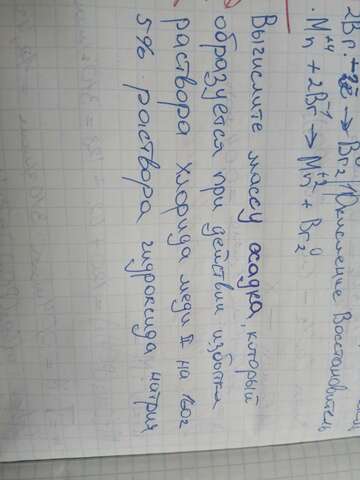 2Br⁻ - 2ē → Br₂ | Окисление Восстановитель
Mn⁺⁴ + 2Br⁻¹ → Mn⁺² + Br₂⁰
Вычислите массу осадка, который
образуется при действии избытка
раствора хлорида меди II на 160г
5% раствора гидроксида натрия